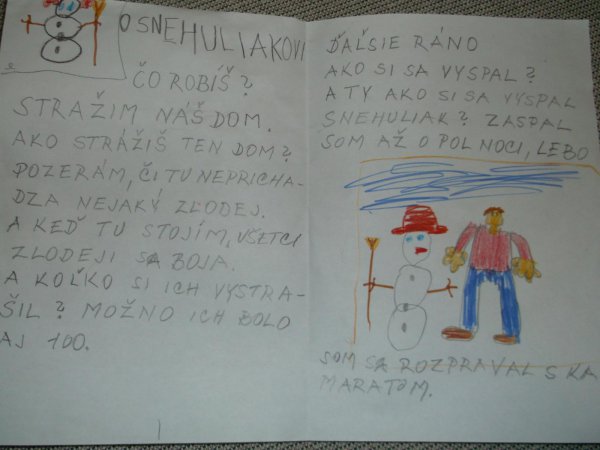 O SNEHULIAKOVI
ČO ROBÍŠ?
STRAŽIM NÁŠ DOM.
AKO STRÁŽIŠ TEN DOM?
POZERÁM, ČI TU NEPRICHA-
DZA NEJAKÝ ZLODEJ.
A KEĎ TU STOJÍM, VŠETCI
ZLODEJI SA BOJA.
A KOĽKO SI ICH VYSTRA-
ŠIL? MOŽNO ICH BOLO
AJ 100.
ĎAĽSIE RÁNO
AKO SI SA VYSPAL?
A TY AKO SI SA VYSPAL
SNEHULIAK? ZASPAL
SOM AŽ O POL NOCI, LEBO
SOM SA ROZPRAVAL S KA
MARATOM.